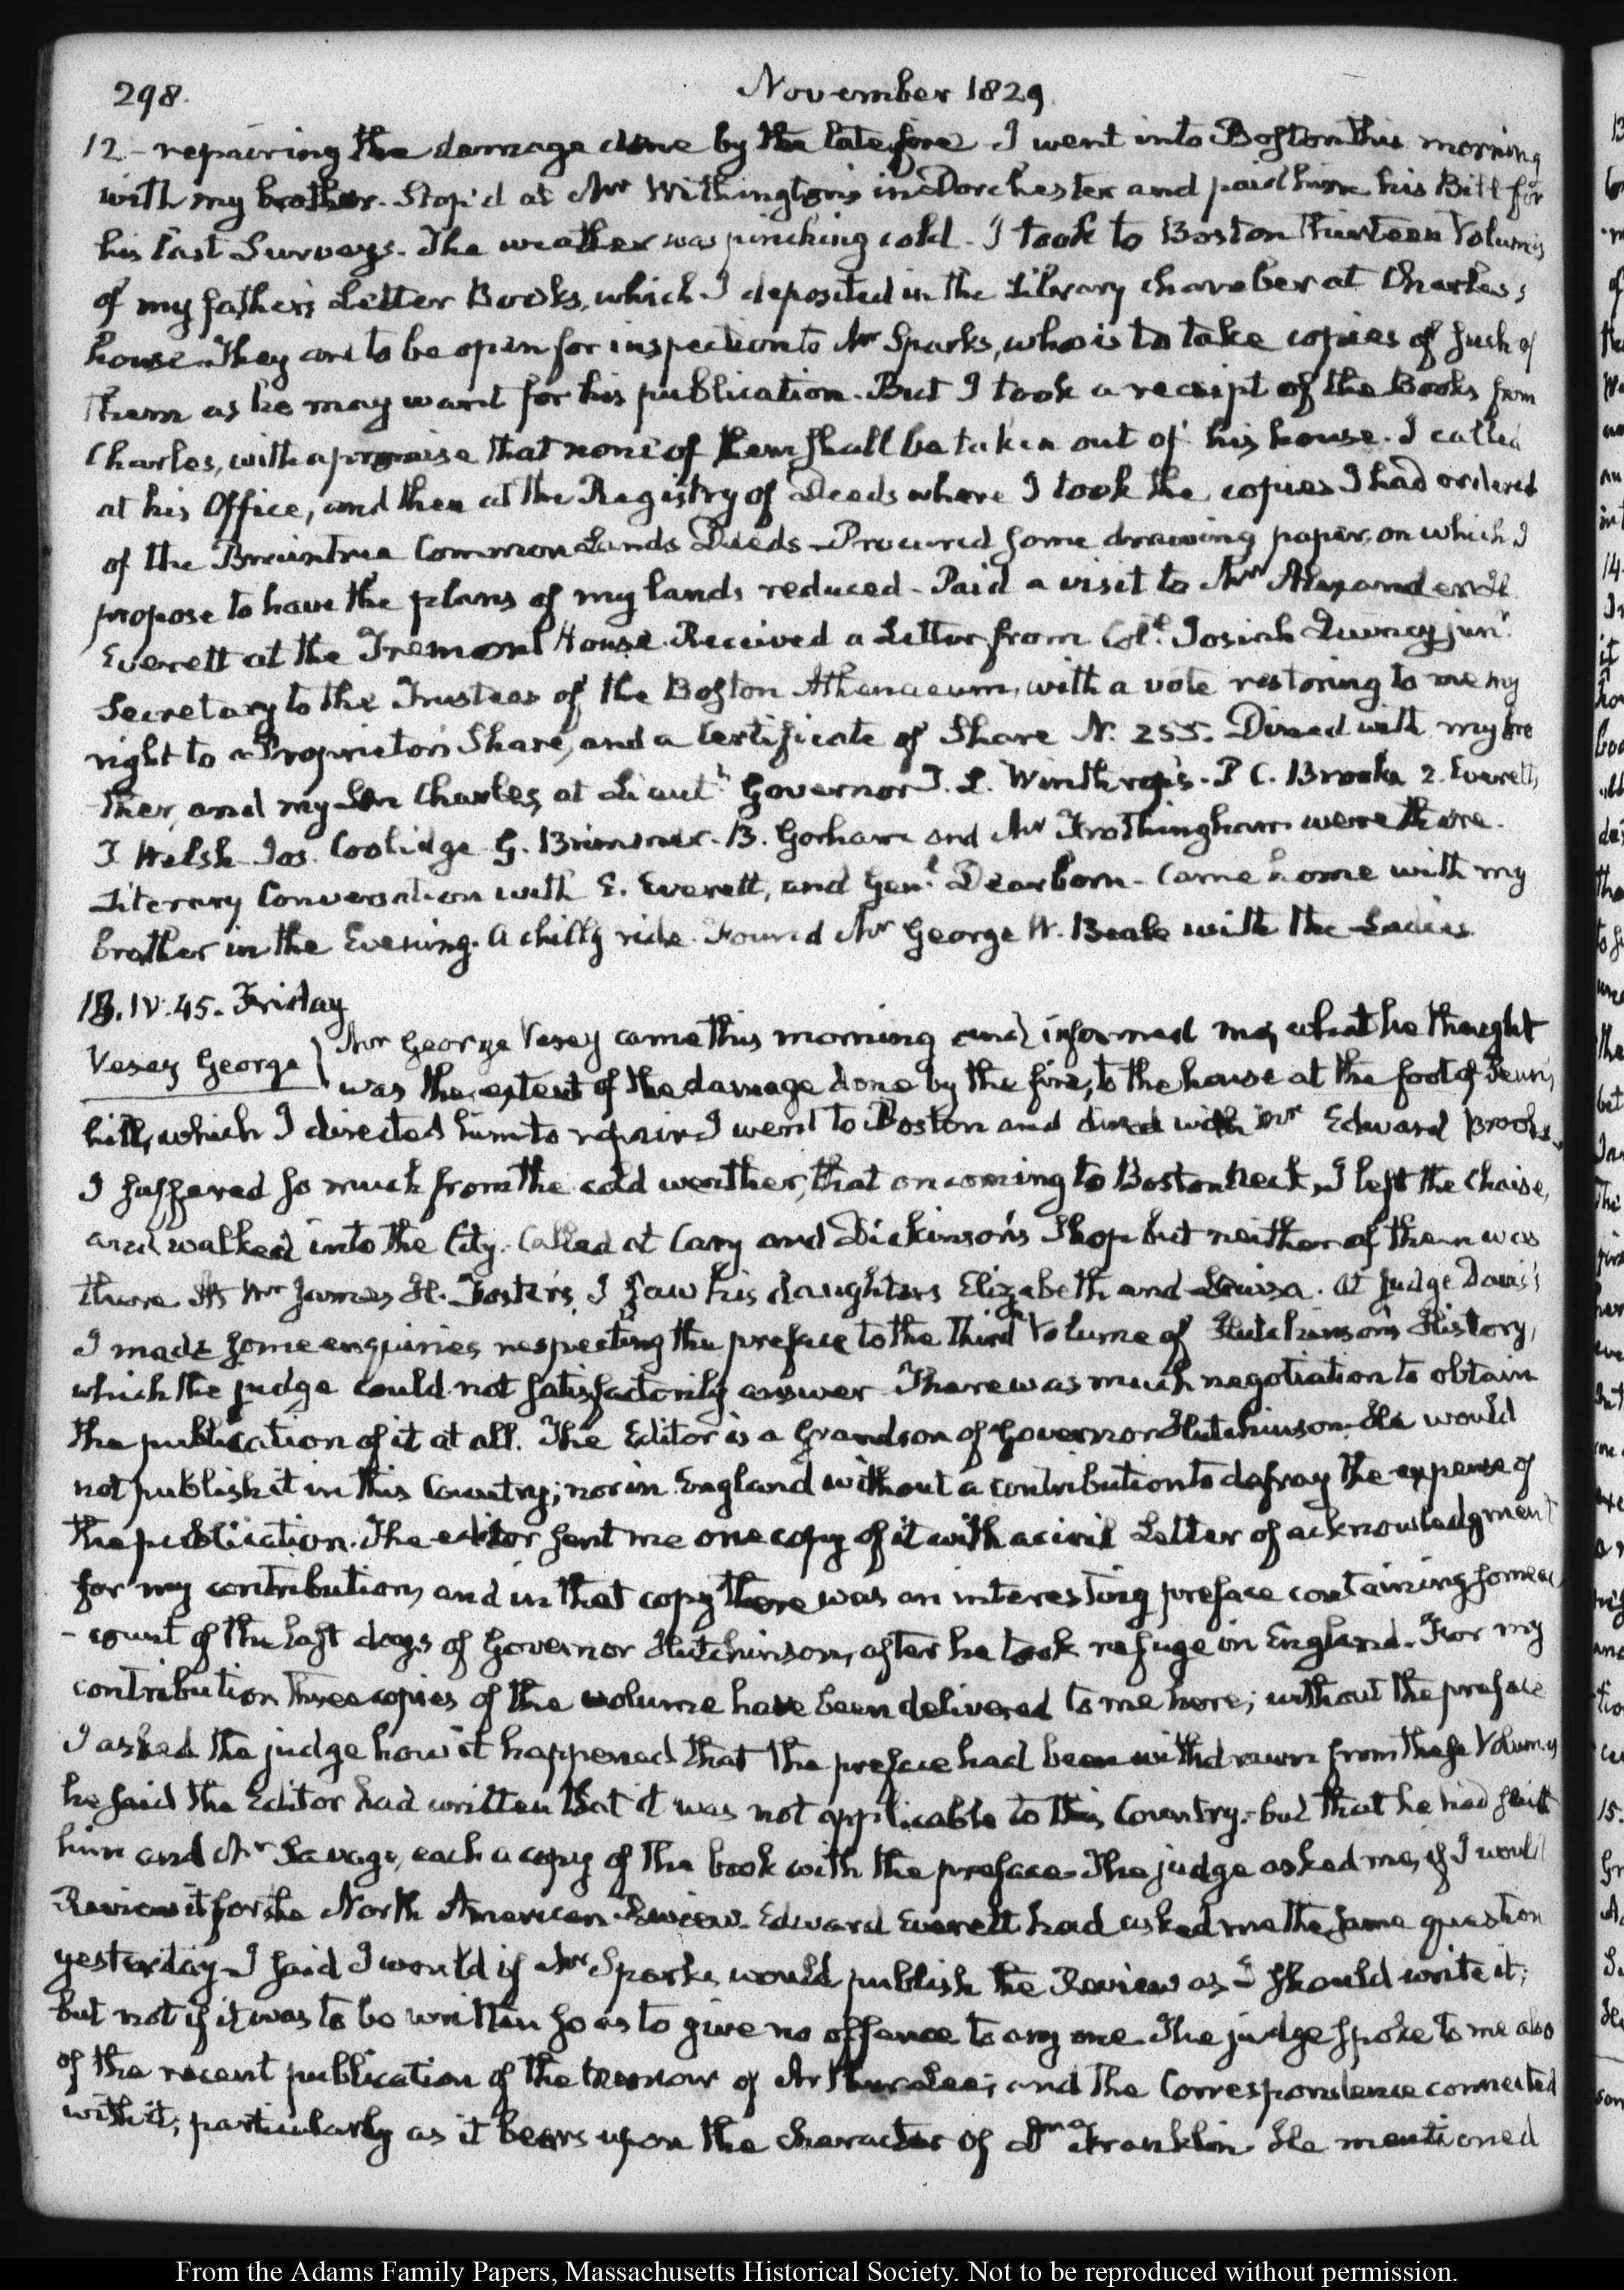 298.
November 1829
12 – repairing the damage done by the late fire. I went into Boston this morning
with my brother. Stop'd at Mr Withington's in Dorchester and paid him his Bill for
his last Surveys. The weather was pinching cold. I took to Boston thirteen Volumes
of my father's Letter Books, which I deposited in the Library chamber at Charles's
house. They are to be open for inspection to Mr Sparks, who is to take copies of such of
them as he may want for his publication. But I took a receipt of the Books from
Charles, with a promise that none of them shall be taken out of his house. I called
at his Office, and then at the Registry of Deeds where I took the copies I had ordered
of the Braintree Common Lands Deeds – Procured some drawing paper, on which I
propose to have the plans of my lands reduced – Paid a visit to Mr Alexander H.
Everett at the Tremont House. Received a Letter from Col. Josiah Quincy junr.
Secretary to the Trustees of the Boston Athenaeum, with a vote restoring to me my
right to a Proprietor's Share, and a Certificate of Share N. 255. Dined with my bro
ther, and my Son Charles, at Lieutt Governor T. L. Winthrop's. P C. Brooks 2. Everetts,
T Welsh Jos. Coolidge G. Brimmer. B. Gorham and Mr Frothingham were there.
Literary Conversation with E. Everett, and Genl Dearborn – Came home with my
brother in the Evening. A chilly ride. Found Mr George W. Beale with the Ladies.
13. IV. 45. Friday
Vesey George
Mr George Vesey came this morning and informed me, what he thought
was the extent of the damage done by the fire, to the house at the foot of Penn's
hill, which I directed him to repair. I went to Boston and dined with Mr Edward Brooks.
I suffered so much from the cold weather, that on coming to Boston neck, I left the Chaise,
and walked into the City. Called at Cary and Dickinson's Shop but neither of them was
there. At Mr James H. Foster's, I saw his daughters Elizabeth and Louisa. At Judge Davis's
I made some enquiries respecting the preface to the Third Volume of Hutchinson's History,
which the judge could not satisfactorily answer. There was much negotiation to obtain
the publication of it at all. The Editor is a Grandson of Governor Hutchinson. He would
not publish it in this Country; nor in England without a contribution to defray the expense of
the publication. The editor sent me one copy of it with a civil Letter of acknowledgment
for my contribution, and in that copy there was an interesting preface containing some ac
– count of the last days of Governor Hutchinson, after he took refuge in England. For my
contribution three copies of the volume have been delivered to me here; without the preface
I asked the judge how it happened that the preface had been withdrawn from these Volumes
he said the Editor had written that it was not applicable to this Country – but that he had sent
him and Mr Savage, each a copy of the book with the preface. The judge asked me, if I would
Review it for the North American Review. Edward Everett had asked me the same question
yesterday. I said I would if Mr Sparks would publish the Review as I should write it;
but not if it was to be written so as to give no offence to any one. The judge spoke to me also
of the recent publication of the Memoir of Arthur Lee; and the Correspondence connected
with it; particularly as it bears upon the character of Franklin. He mentioned
From the Adams Family Papers, Massachusetts Historical Society. Not to be reproduced without permission.